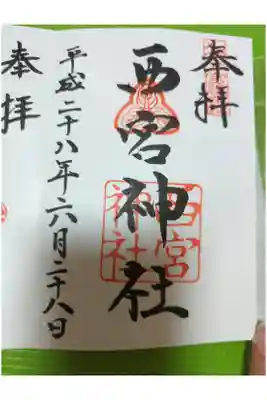 奉拝
西宮神社
西宮
神社
平成二十八年六月二十八日
奉拝